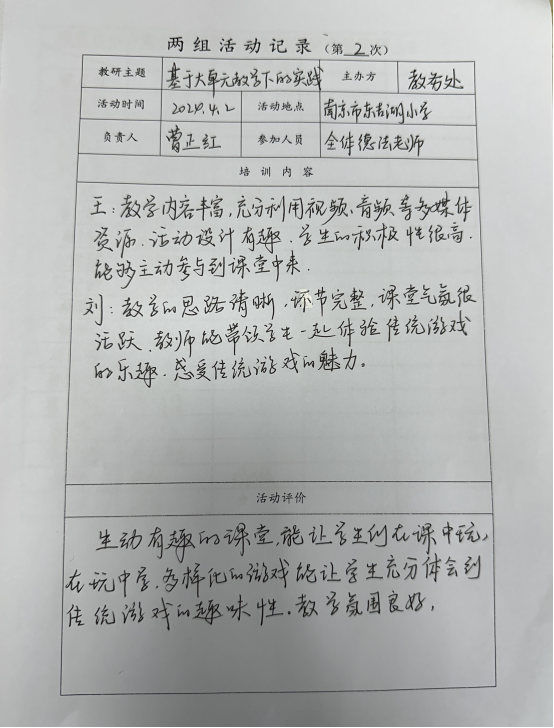 两组活动记录（第 2 次）
教研主题 基于大单元教学下的实践 主办方 教务处
活动时间 2024.4.2 活动地点 南京市东书湖小学
负责人 曹正红 参加人员 全体德法老师
培训内容
王：教学内容丰富，充分利用视频、音频等多媒体
资源．活动设计有趣．学生的积极性很高．
能够主动参与到课堂中来．
刘：教学的思路清晰，环节完整，课堂气氛很
活跃．教师能带领学生一起体验传统游戏
的乐趣．感受传统游戏的魅力。
活动评价
生动有趣的课堂，能让学生们在课中玩，
在玩中学．多样化的游戏能让学生充分体会到
传统游戏的趣味性．教学氛围良好，